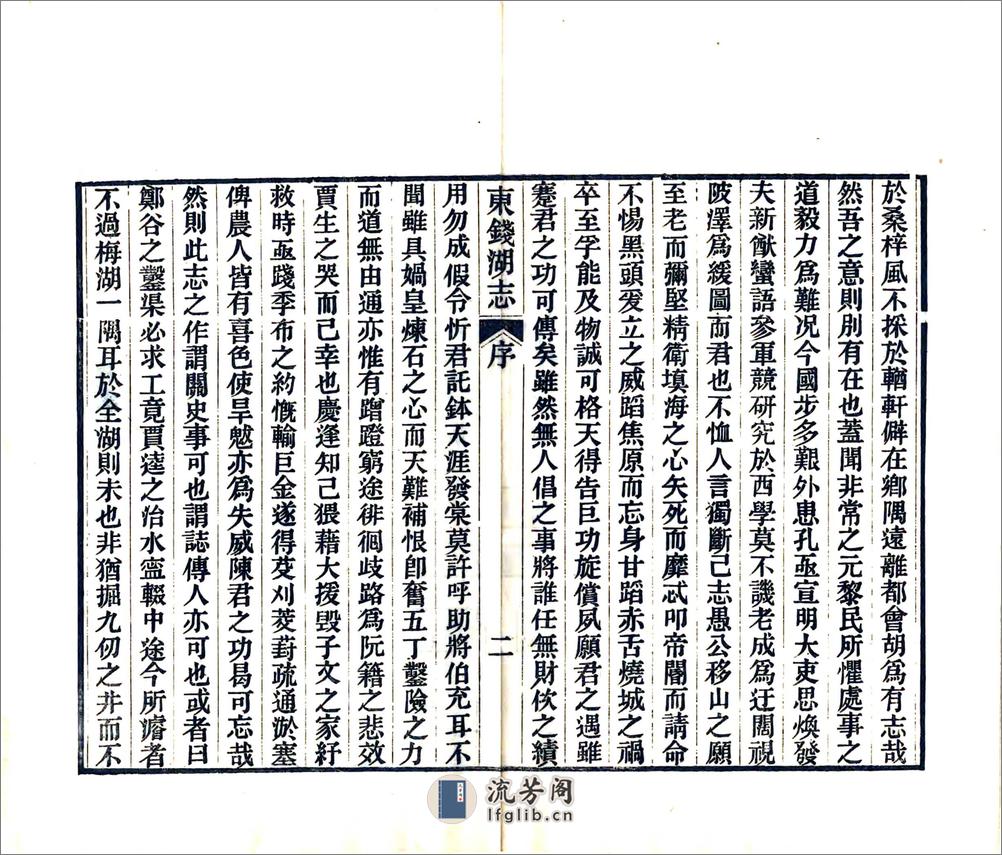 於桑梓風不採於輶軒僻在鄉隅遠離都會胡爲有志哉
然吾之意則別有在也蓋聞非常之元黎民所懼處事之
道毅力爲難况今國步多艱外患孔亟宣明大吏思煥發
夫新猷蠻語參軍競研究於西學莫不譏老成爲迂闊視
陂澤爲緩圖而君也不恤人言獨斷己志愚公移山之願
至老而彌堅精衛塡海之心矢死而靡忒叩帝閽而請命
不惕黑頭爰立之威蹈焦原而忘身甘蹈赤舌燒城之禍
卒至孚能及物誠可格天得告巨功旋償夙願君之遇雖
蹇君之功可傳矣雖然無人倡之事將誰任無財佽之績
東錢湖志 序 二
用勿成假令忻君託鉢天涯發棠莫許呼助將伯充耳不
聞雖具媧皇煉石之心而天難補恨卽奮五丁鑿險之力
而道無由通亦惟有蹭蹬窮途徘徊歧路爲阮籍之悲效
賈生之哭而已幸也慶逢知己猥藉大援毀子文之家紓
救時亟踐季布之約慨輸巨金遂得芟刈菱葑疏通淤塞
俾農人皆有喜色使旱魃亦爲失威陳君之功曷可忘哉
然則此志之作謂關史事可也謂誌傳人亦可也或者曰
鄭谷之鑿渠必求工竟賈逵之治水寍輟中途今所濬者
不過梅湖一隅耳於全湖則未也非猶掘九仞之井而不
流芳阁
lfglib.cn